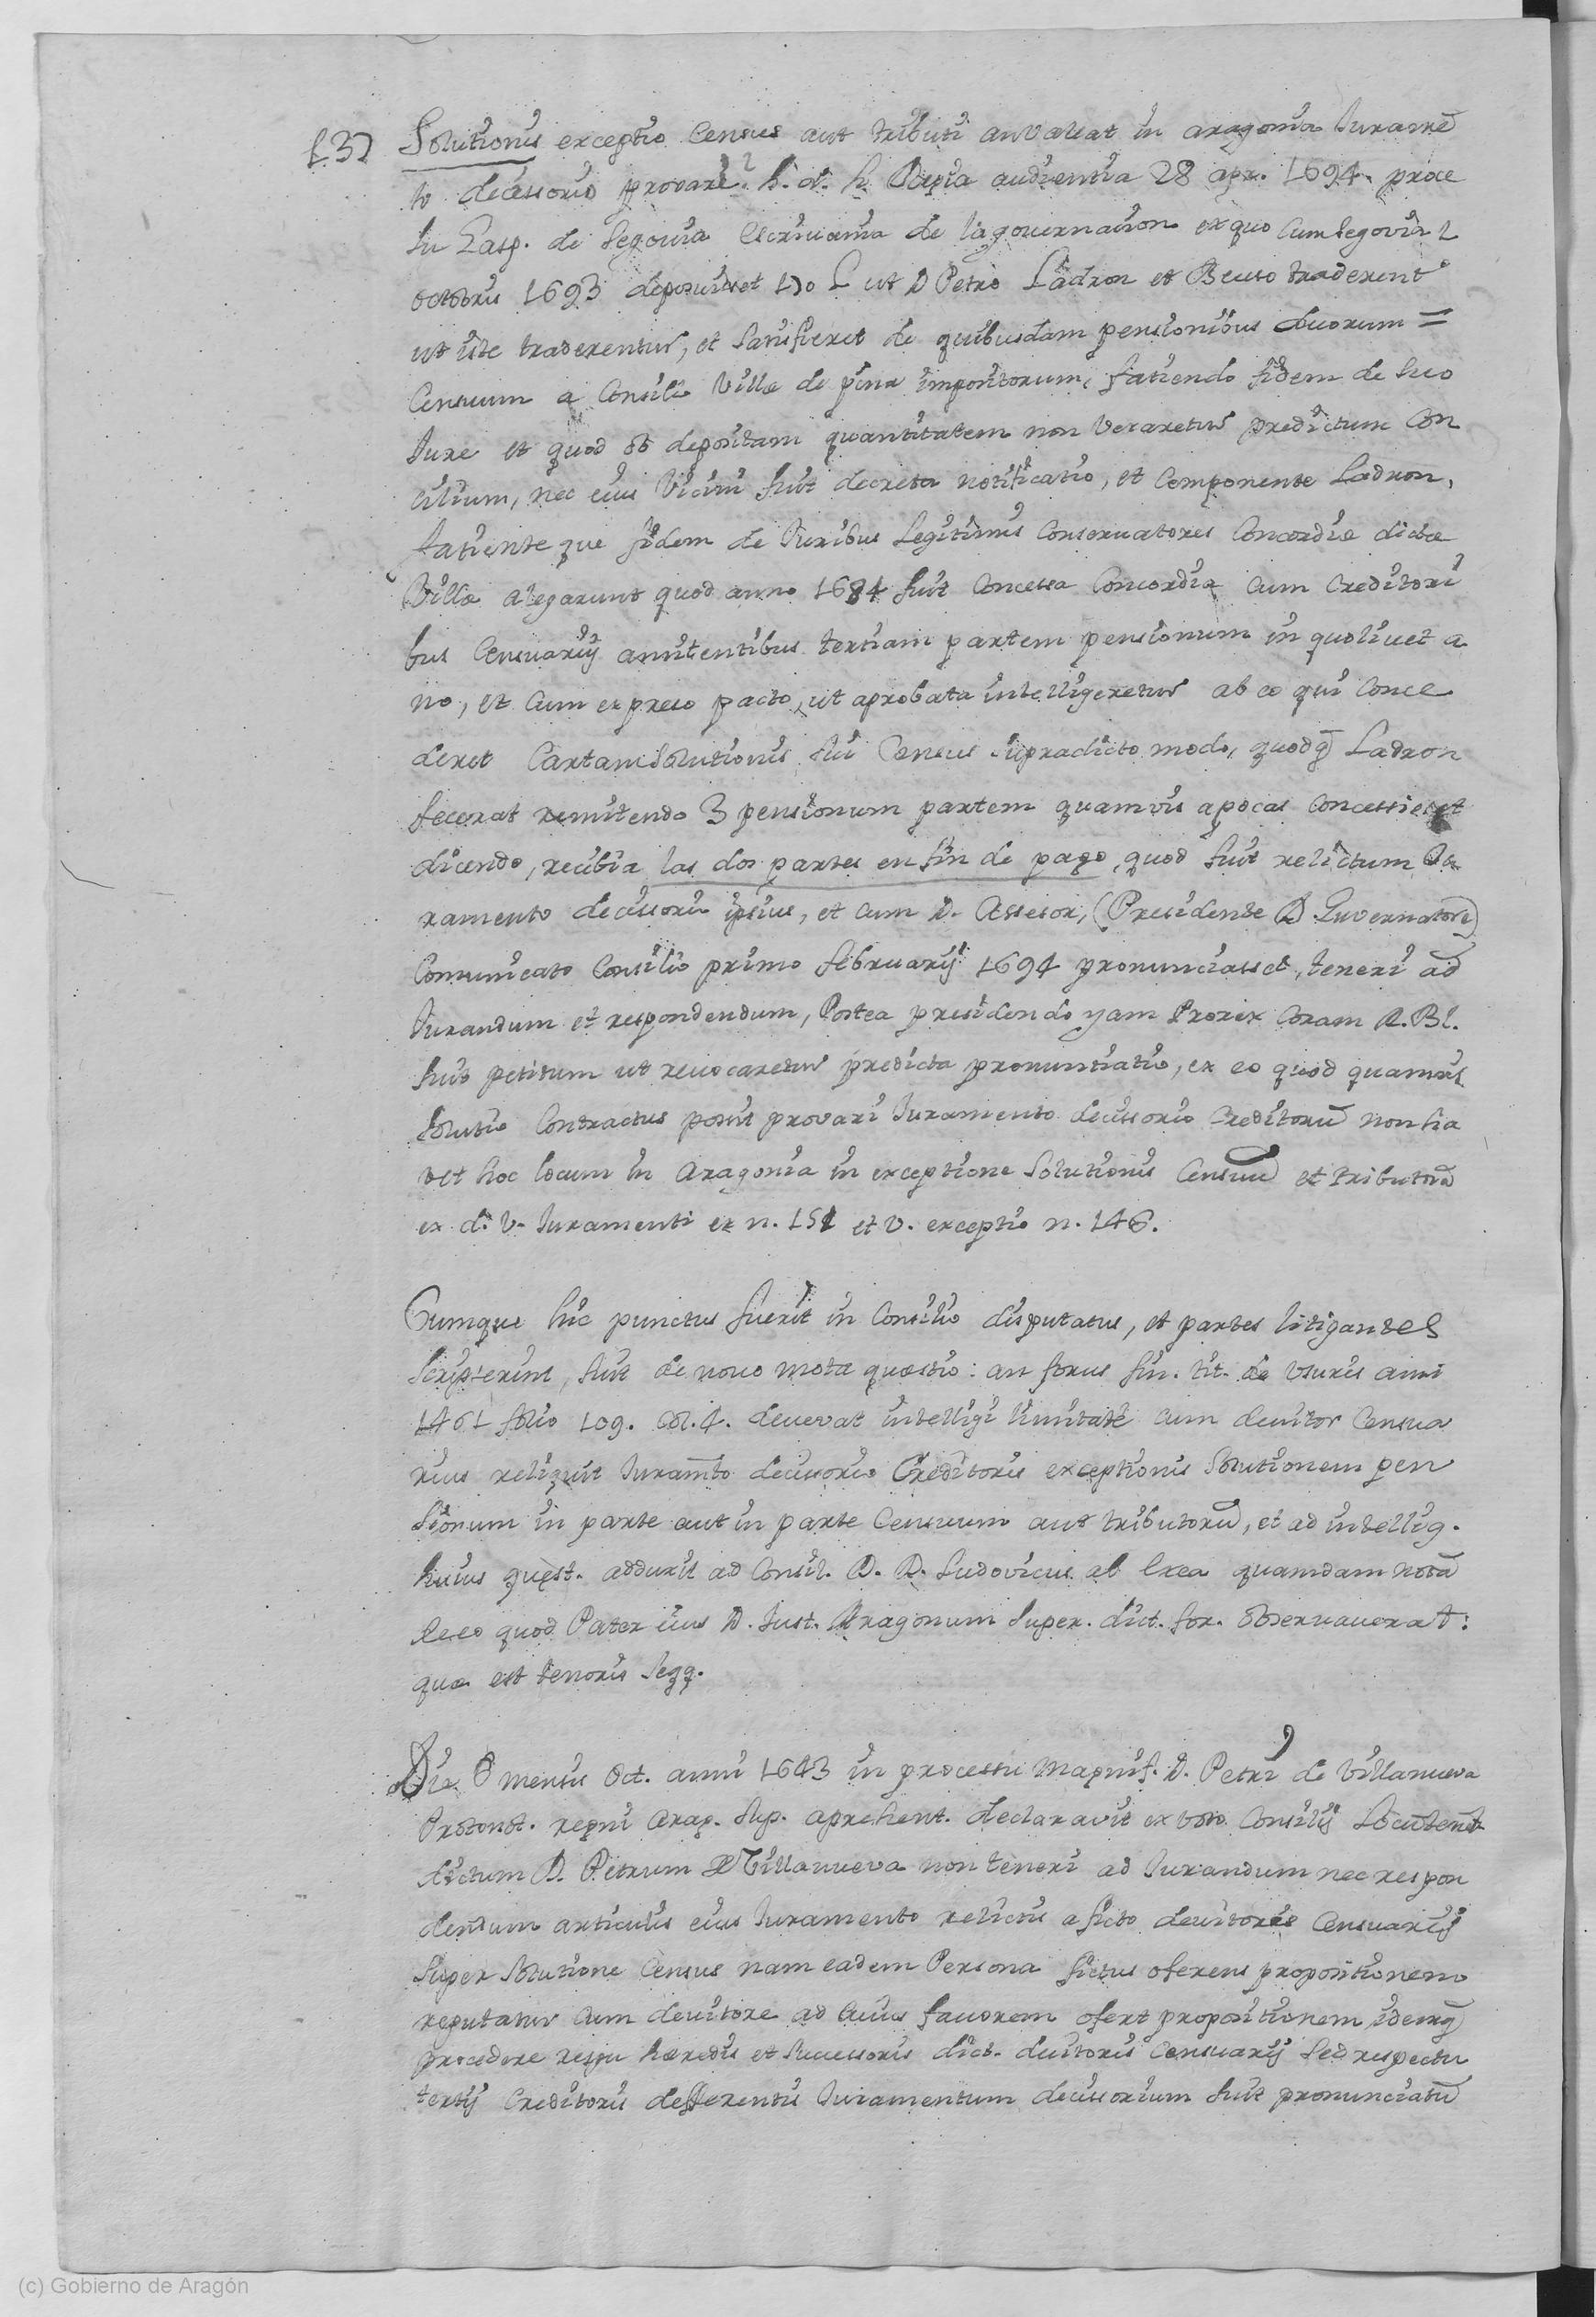 [3] Solutionis exceptio Census aut tributi anvaleat in aragonia Juramē
to decissorio provari? h. d. h. Regia audientia 28 apr. 1694. proce
su Gasp. de Segovia Escrivania de la governacion ex quo cum Segovia 2
octobris 1693 deposuisset 170 L ut D Petro Ladron et Beuso traderent
ut iste traderentur, et satisfieret de quibusdam pensionibus duorum =
Censuum a Consilio Villæ de pina impositorum, fatiendo fidem de suo
Jure et quod ob depositam quantitatem non vexaretur predictum Con
cilium, nec eius Vicini fuit decreta notificatio, et Componente Ladron,
fatiente que fidem de Juribus Legitimis Conservatores Concordiæ dictæ
Villæ alegarunt quod anno 1684 fuit Concessa Concordia cum Creditori
bus Censuarijs amitentibus tertiam partem pensionum in quolivet a
no, et cum expreso pacto, ut aprobata intelligeretur ab eo qui Conce
deret Cartam Solutionis sui Census supradicto modo, quodq̄ Ladron
fecerat remitendo 3 pensionum partem quamvis apocas Concessisset
dicendo, recibia las dos partes en fin de pago, quod fuit relictum Ju
ramento decissorio ipsius, et cum D. Assesor, (Presidente D. Guvernatore)
Comunicato Consilio primo februarij 1694 pronunciasset, teneri ad
Jurandum et respondendum, Postea presidendo yam Prorex Coram R. Bl.
fuit petitum ut revocaretur predicta pronuntiatio, ex eo quod quamvis
Solutio Contractus possit provari Juramento decissorio Creditorū non ha
vet hoc locum in Aragonia in exceptione Solutionis Censuū et tributorū
ex d. V. Juramenti ex n. 151 et v. exceptio n. 146.
Cumque hic punctus fuerit in Consilio disputatus, et partes litigantes
Scripserint, fuit de novo mota quæstio: an forus fin. tit. de Usuris anni
1461 folio 109. Col. 4. devevat intelligi limitatē cum devitor Censua
rius reliquit Juram̄to decissorio Creditoris exceptionis Solutionem pen
sionum in parte aut in parte Censuum aut tributorū, et ad intellig.
huius quęst. adduxit ad Consil. D. D. Ludovicus ab Exea quamdam notā
de eo quod Pater eius D. Just. Aragonum super. dict. for. observaverat:
quæ est tenoris seqq.
Die 8 mensis Oct. anni 1643 in processu Magnif. D. Petri de Villanueva
Protonot. regni Arag. sup. aprehent. declaravit ex voto Consilij Locūtenēt
dictum D. Petrum Villanueva non teneri ad Jurandum nec respon
dendum articulis eius Juramento relictis a ficto devitoris Censuarij
super Solutione Census nam eadem Persona fictus oferens propositionem
reputatur cum devitore ad cuius favorem ofert propositionem idemq̄
procedere respu hæredis et Successoris dict. devitoris Censuarij sed respectu
tertij Creditoris defferentis Juramentum decissorium fuit pronunciatū
(c) Gobierno de Aragón